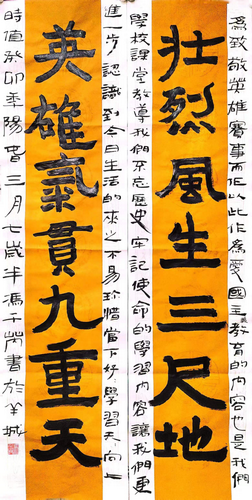 為致敬英雄賽事而作以此作為愛國主義教育的內容也是我們
壯烈風生三尺地
學校課堂教導我們不忘歷史牢記使命的學習內容讓我們更
進一步認識到今日生活的來之不易珍惜當下好〻學習天〻向上
英雄氣貫九重天
時值癸卯年陽春三月七歲半馮千芮書於羊城